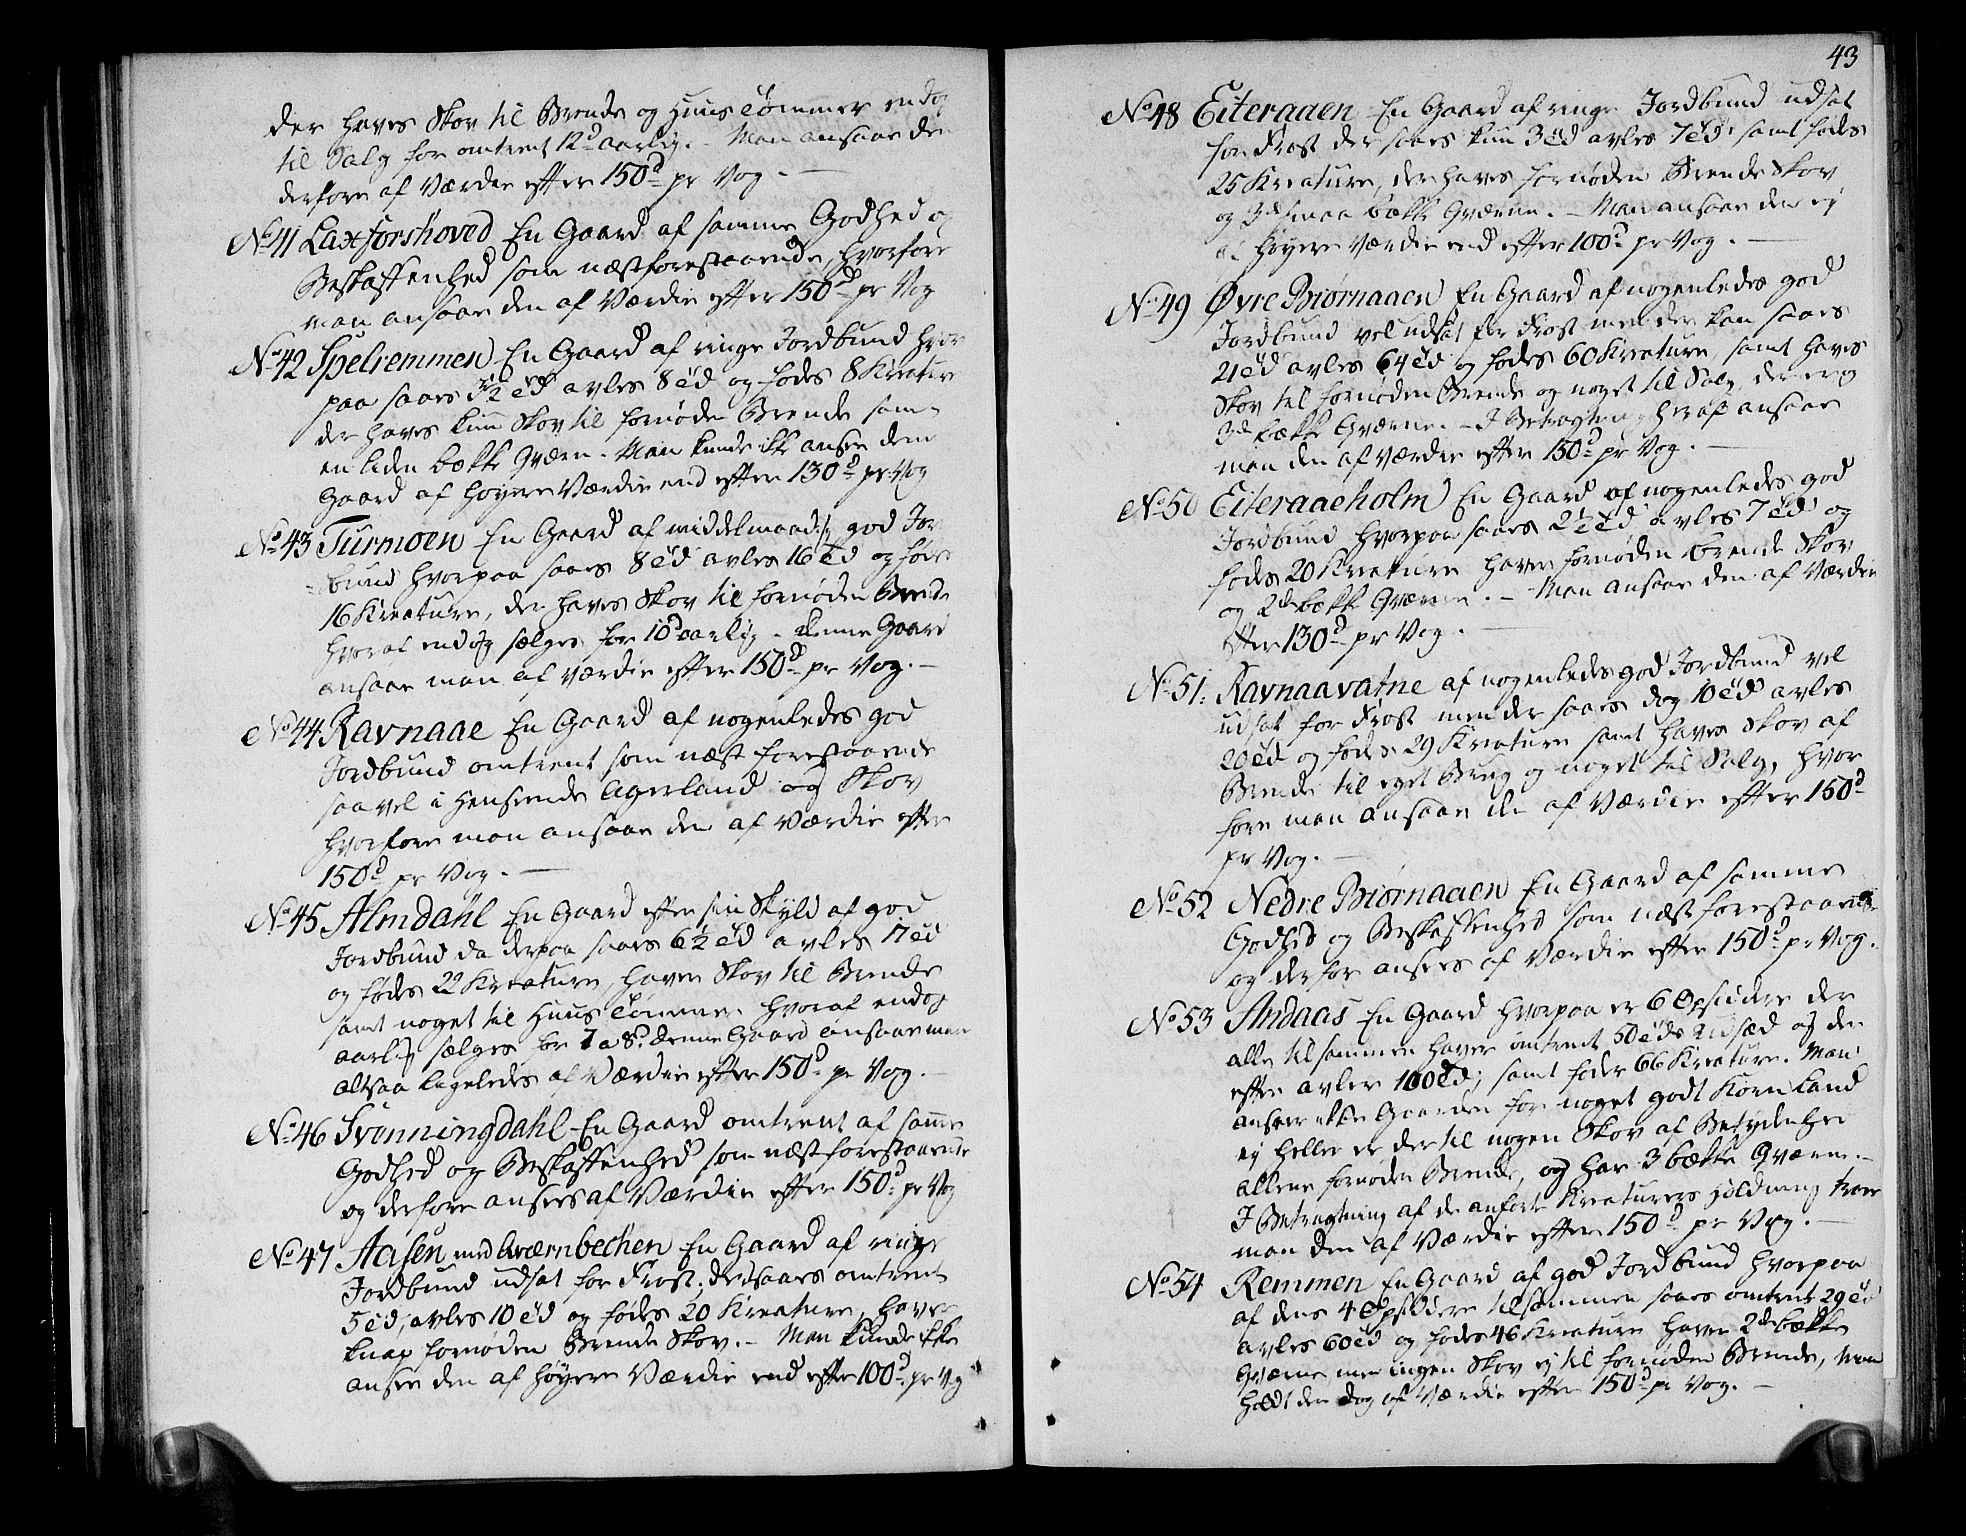 der haves Skov til Brende og Huus Tømmer endog
til Salg for omtrent 12d aarlig. – Man ansaae den
derfore af Værdie efter 150d pr Vog. –
No 41 Laxforshoved En Gaard af samme Godhed og
Beskaffenhed som næstforestaaende, hvorfore
man ansaae den af Værdie efter 150d pr Vog
No 42 Spelremmen En Gaard af ringe Jordbund hvor
paa saaes 3½ Td avles 8 Td og fødes 8 Kreature
der haves kun Skov til fornøden Brende samt
en liden bække Qværn. Man kunde ikke ansee denne
Gaard af høyere Værdie end efter 130d pr Vog
No 43 Turmoen En Gaard af middelmaadig god Jord
bund hvorpaa saaes 8 Td avles 16 Td og føder
16 Kreature, der haves Skov til fornøden Brende
hvoraf endog sælges for 10d aarlig – denne Gaard
ansaae man af Værdie efter 150d pr Vog. –
No 44 Ravnaae En Gaard af nogenledes god
Jordbund omtrent som næst forestaaende
saavel i Henseende Agerland og Skov
hvorfore man ansaae den af Værdie efter
150d pr Vog. –
No 45 Almdahl En Gaard efter sin Skyld af god
Jordbund da derpaa saaes 6½ Td avles 17 Td
og fødes 22 Kreature, haver Skov til Brende
samt noget til Huus Tømmer hvoraf endog
aarlig sælges for 7 a 8d. denne Gaard ansaae man
altsaa ligeledes af Værdie efter 150d pr Vog. –
No 46 Svenningdahl En Gaard omtrent af samme
Godhed og Beskaffenhed som næst forestaaende
og derfore ansees af Værdie efter 150d pr Vog
No 47 Aasen med Qværnbechen En Gaard af ringe
Jordbund udsat for Frost; der saaes omtrent
5 Td, avles 10 Td og fødes 20 Kreature, haver
knap fornøden Brende Skov. – Man kunde ikke
ansee den af høyere Værdie end efter 100d pr Vog
43
No 48 Eiteraaen En Gaard af ringe Jordbund udsat
for Frost der saaes kun 3 Td avles 7 Td samt fødes
25 Kreature, der haves fornøden Brende Skov
og 3de smaa bække Qværne. – Man ansaae den ej
høyere Værdie end efter 100d pr Vog. –
No 49 Øvre Biørnaaen En Gaard af nogenledes god
Jordbund vel udsat for Frost men der kan saaes
21 Td avles 64 Td og fødes 60 Kreature, samt haves
Skov til fornøden Brende og noget til Salg, der er og
3de bække Qværne. – I Betragtning heraf ansaae
man den af Værdie efter 150d pr Vog. –
No 50 Eiteraaeholm En Gaard af nogenledes god
Jordbund hvorpaa saaes 2½ Td avles 7 Td og
fødes 20 Kreature haver fornøden brende Skov
og 2de bække Qværne. – Man ansaae den af Værdie
efter 130d pr Vog. –
No 51: Ravnaavatne af nogenledes god Jordbund vel
udsat for Frost men der saaes dog 10 Td avles
20 Td og fødes 29 Kreature samt haves Skov af
Brende til eget Brug og noget til Salg, hvor
fore man ansaae den af Værdie efter 150d
pr Vog. –
No 52 Nedre Biørnaaen En Gaard af samme
Godhed og Beskaffenhed som næst forestaaende
og derfor ansees af Værdie efter 150d pr Vog.
No 53 Andaas En Gaard hvorpaa er 6 Opsiddere der
alle tilsammen haver omtrent 50 Tds Udsæd og der
efter avler 100 Td; samt føder 66 Kreature. Man
ansaae ikke Gaarden for noget godt Korn Land
ej heller er der til nogen Skov af Betydenhed
allene fornøden Brende, og har 3 bække Qværne. –
I Betragtning af de anførte Kreaturers Holdning troer
man den af Værdie efter 150d pr Vog. –
No 54 Remmen En Gaard af god Jordbund hvorpaa
af dens 4 Opsiddere tilsammen saaes omtrent 29 Td
avles 60 Td og fødes 46 Kreature haver 2de bække
Qværne men ingen Skov ej til fornøden Brende, Man
holdt den dog af Værdie efter 150d pr Vog. –